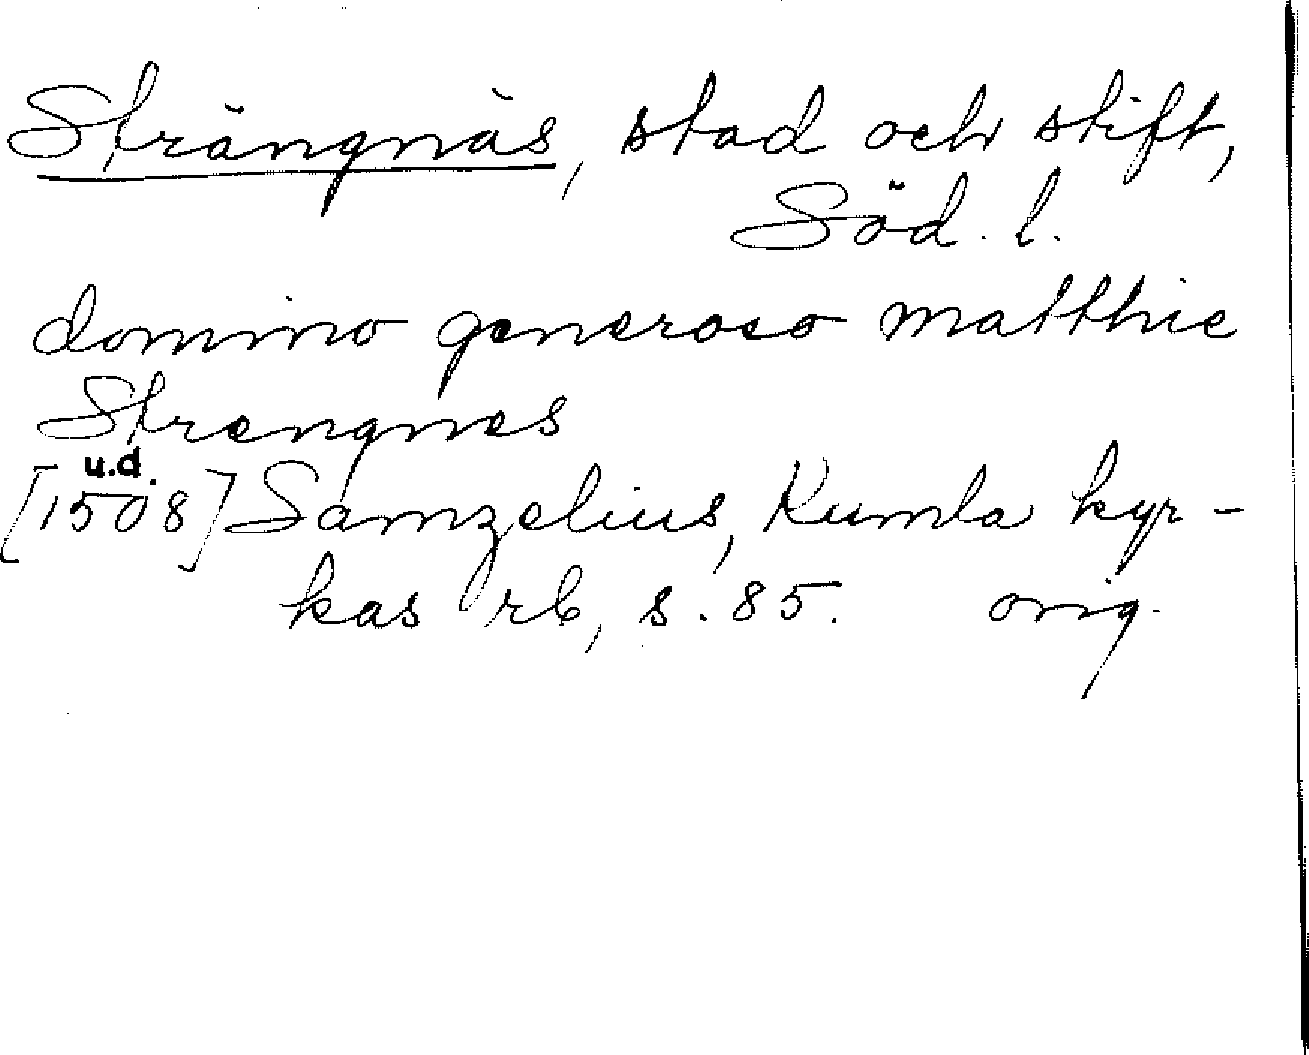 Strängnäs, stad och stift,
Söd. l.
domino generoso matthie
Strengnes
u.d.
[1508] Samzelius, Kumla kyr-
kas rb, s. 85. orig.